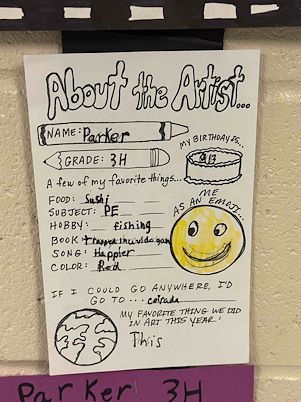 About the Artist...
NAME: Parker
MY BIRTHDAY IS...
9/3
GRADE: 3H
A few of my favorite things...
FOOD: Sushi
SUBJECT: PE
HOBBY: fishing
BOOK: trapped in a video game
SONG: Happier
COLOR: Red
ME
AS AN EMOJI...
IF I COULD GO ANYWHERE, I'D
GO TO...
MY FAVORITE THING WE DID
IN ART THIS YEAR:
This
Parker 3H